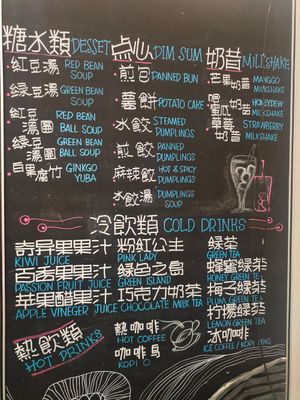 糖水類 DESSET
紅豆湯 RED BEAN SOUP
綠豆湯 GREEN BEAN SOUP
紅豆湯圓 RED BEAN BALL SOUP
綠豆湯圓 GREEN BEAN BALL SOUP
白果腐竹 GINKGO YUBA
点心 DIM SUM
煎包 PANNED BUN
薯餅 POTATO CAKE
水餃 STEAMED DUMPLINGS
煎餃 PANNED DUMPLINGS
麻辣餃 HOT & SPICY DUMPLINGS
水餃湯 DUMPLINGS SOUP
奶昔 MILLSHAKE
芒果奶昔 MANGGO MILKSHAKE
奶昔 HONEYDEW MILKSHAKE
奶昔 STRAWBERRY MILKSHAKE
冷飲類 COLD DRINKS
奇异果果汁
KIWI JUICE
百香果果汁
PASSION FRUIT JUICE
苹果醋果汁
APPLE VINEGER JUICE
粉紅公主
PINK LADY
綠色之島
GREEN ISLAND
巧克力奶茶
CHOCOLATE MILK TEA
綠茶
GREEN TEA
蜂蜜綠茶
HONEY GREEN TEA
梅子綠茶
PLUM GREEN TEA
柠檬綠茶
LEMON GREEN TEA
冰咖啡
ICE COFFEE / KOPI
熱飲類
HOT DRINKS
熱咖啡
HOT COFFEE
咖啡烏
KOPI O